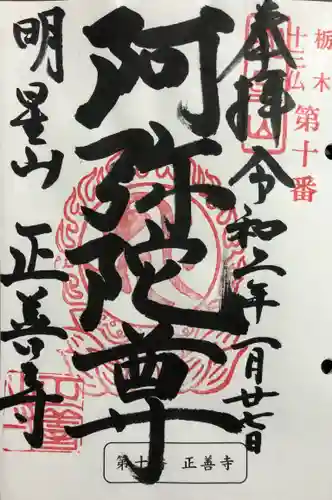 栃木
十三仏
第十番
奉拝
令和二年一月廿七日
阿弥陀尊
明星山 正善寺
第十番 正善寺